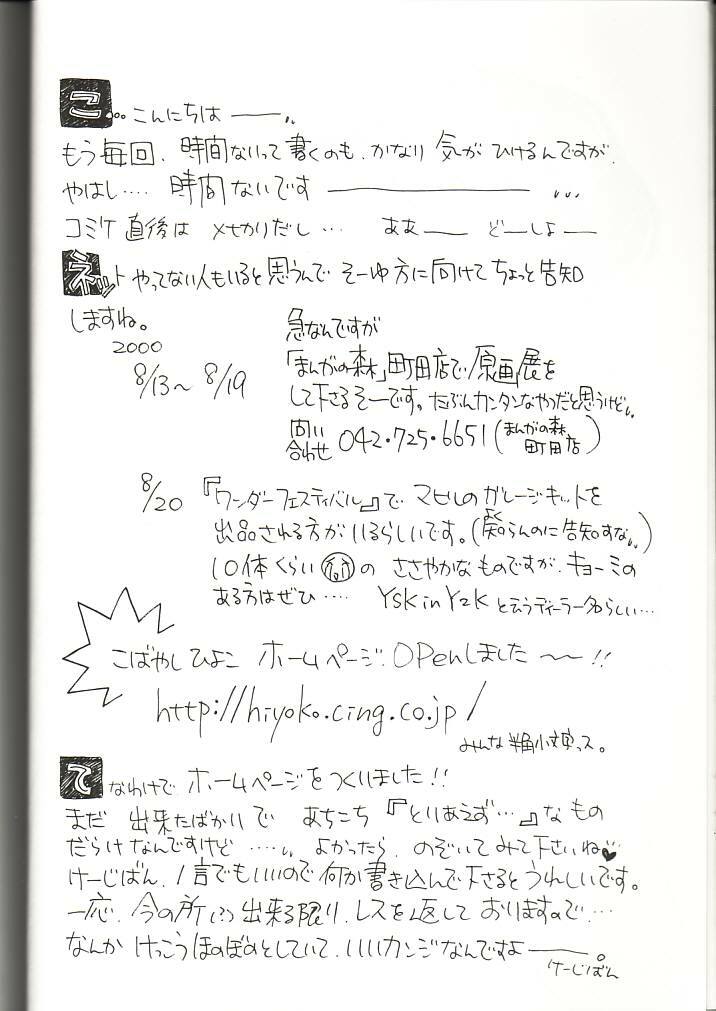 こ… こんにちは ――..
もう毎回、時間ないって書くのも、かなり気がひけるんですが、
やはし‥‥ 時間ないです ―――――― ...
コミケ直後は メせかりだし… ああ―― どーしよー
ネット やってない人もいると思うんで そーゆ方に向けてちょっと告知
しますね。
2000
8/13〜 8/19
急なんですが
「まんがの森」町田店で原画展を
して下さるそーです。たぶんカンタンなやつだと思うけど..
問い合わせ 042・725・6651 (まんがの森 町田店)
8/20 『ワンダーフェスティバル』で マヒルのガレージキットを
出品される方がいるらしいです。(よく知らんのに告知すな..)
10体くらい の ささやかなものですが、キョーミの
ある方はぜひ‥‥ YSK in Y2K と云うディーラー名らしい…
こばやしひよこ ホームページ OPenしました 〜〜 !!
http://hiyoko.cing.co.jp/
みんな半角小文字っス。
てなわけで ホームページをつくりました!!
まだ 出来たばかりで あちこち『とりあえず…』なもの
だらけなんですけど ‥‥.. よかったら、のぞいてみて下さいね♥
けーじばん、1言でもいいので何か書き込んで下さるとうれしいです。
一応、今の所 出来る限り、レスを返しておりますので、…
なんか けっこうほのぼのとしていて、いいカンジなんですよ――。
けーじばん